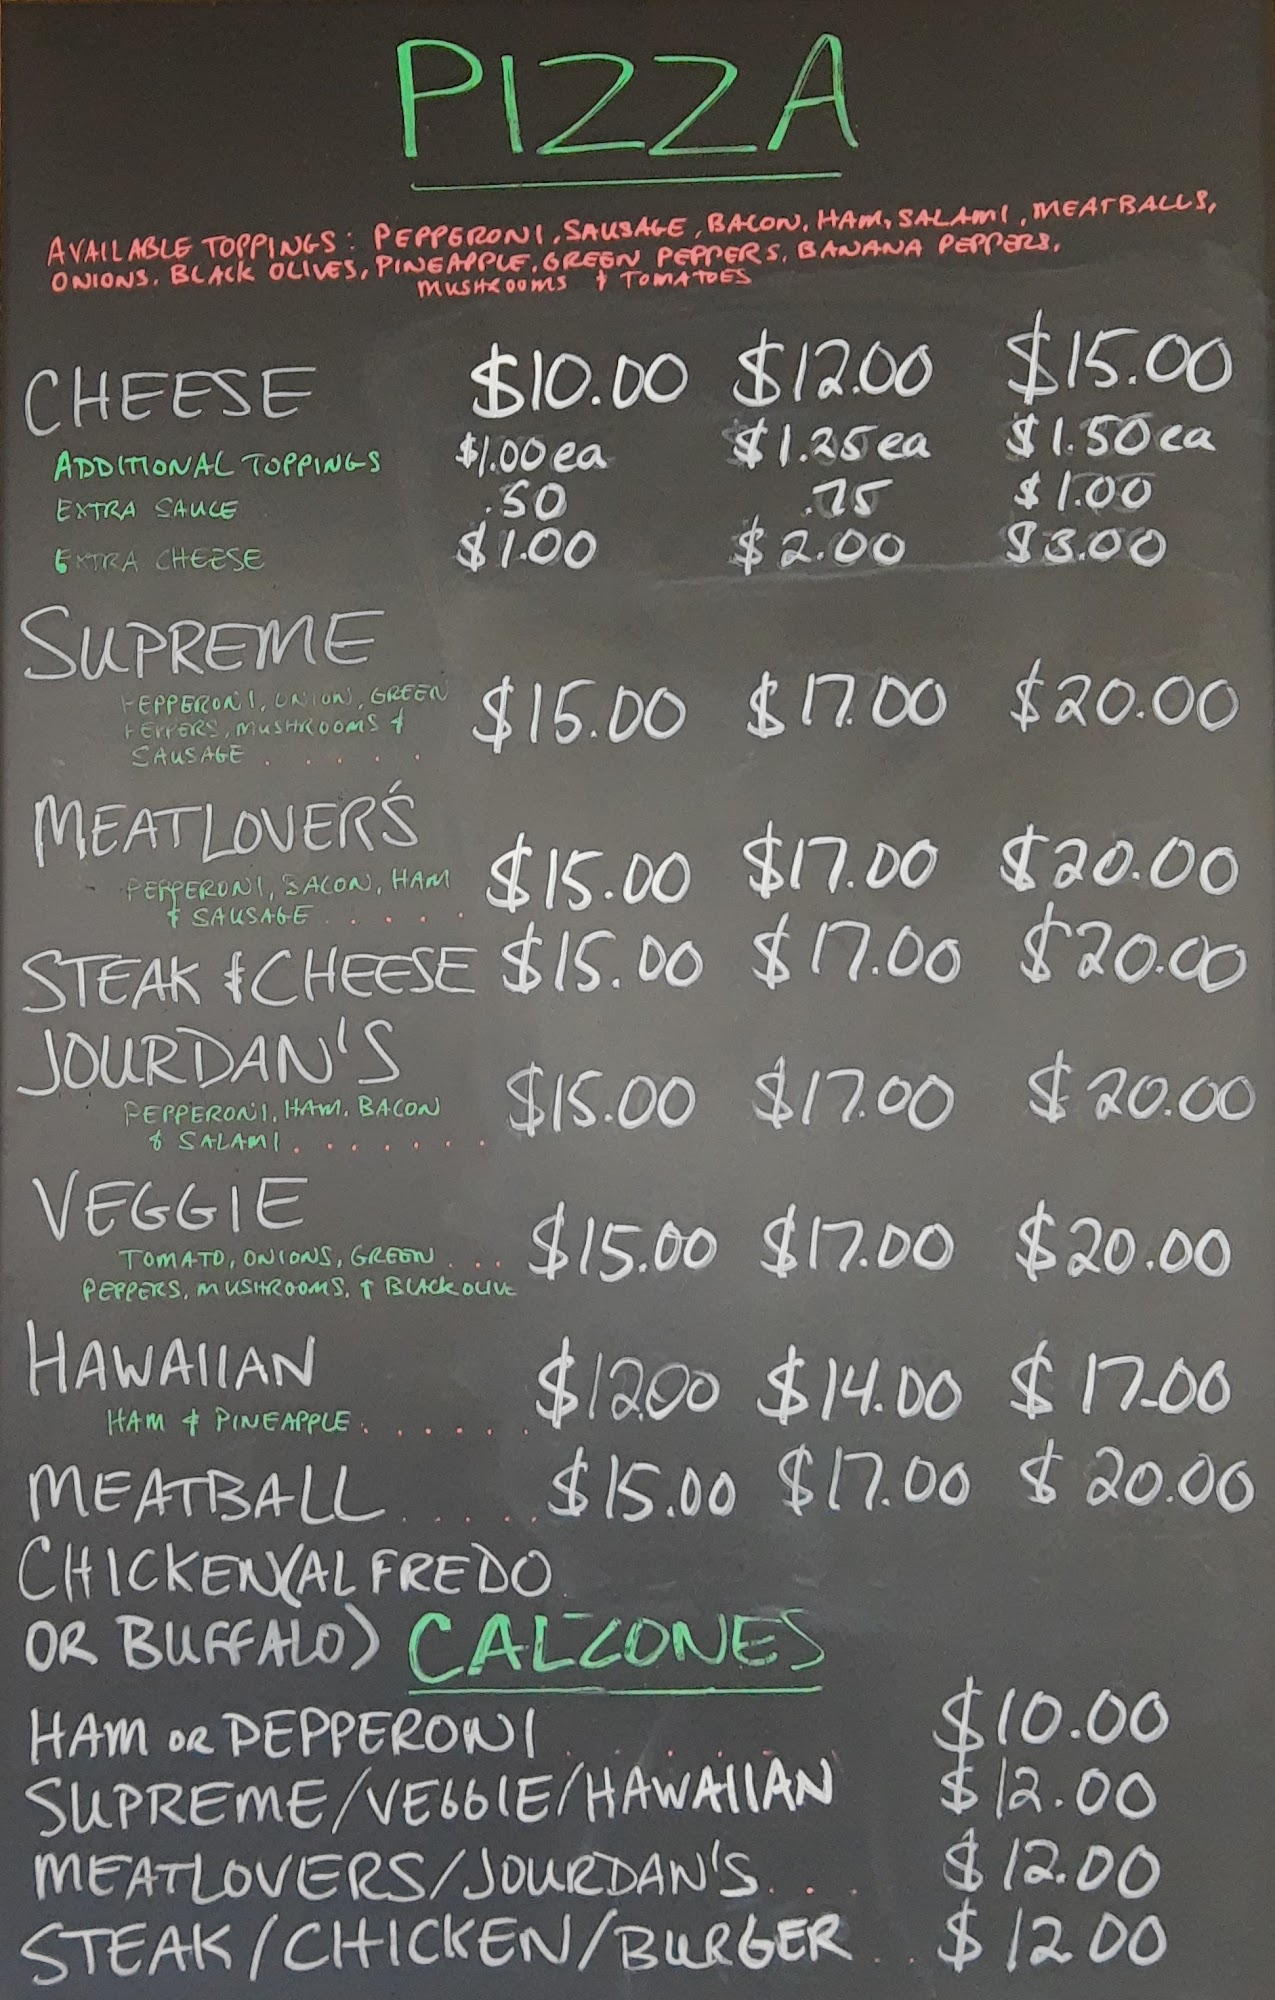 PIZZA
AVAILABLE TOPPINGS: PEPPERONI, SAUSAGE, BACON, HAM, SALAMI, MEATBALLS,
ONIONS, BLACK OLIVES, PINEAPPLE, GREEN PEPPERS, BANANA PEPPERS,
MUSHROOMS & TOMATOES
CHEESE $10.00 $12.00 $15.00
ADDITIONAL TOPPINGS $1.00 ea $1.25 ea $1.50 ea
EXTRA SAUCE .50 .75 $1.00
EXTRA CHEESE $1.00 $2.00 $3.00
SUPREME
PEPPERONI, ONION, GREEN
PEPPERS, MUSHROOMS &
SAUSAGE . . . . . $15.00 $17.00 $20.00
MEATLOVER'S
PEPPERONI, BACON, HAM
& SAUSAGE . . . . . $15.00 $17.00 $20.00
STEAK & CHEESE $15.00 $17.00 $20.00
JOURDAN'S
PEPPERONI, HAM, BACON
& SALAMI . . . . . . . $15.00 $17.00 $20.00
VEGGIE
TOMATO, ONIONS, GREEN . . . $15.00 $17.00 $20.00
PEPPERS, MUSHROOMS, & BLACK OLIVE
HAWAIIAN
HAM & PINEAPPLE . . . . . . $12.00 $14.00 $17.00
MEATBALL . . . . . $15.00 $17.00 $20.00
CHICKEN (ALFREDO
OR BUFFALO)
CALZONES
HAM OR PEPPERONI . . . . . . $10.00
SUPREME/VEGGIE/HAWAIIAN $12.00
MEATLOVERS/JOURDAN'S . . . $12.00
STEAK/CHICKEN/BURGER . . $12.00